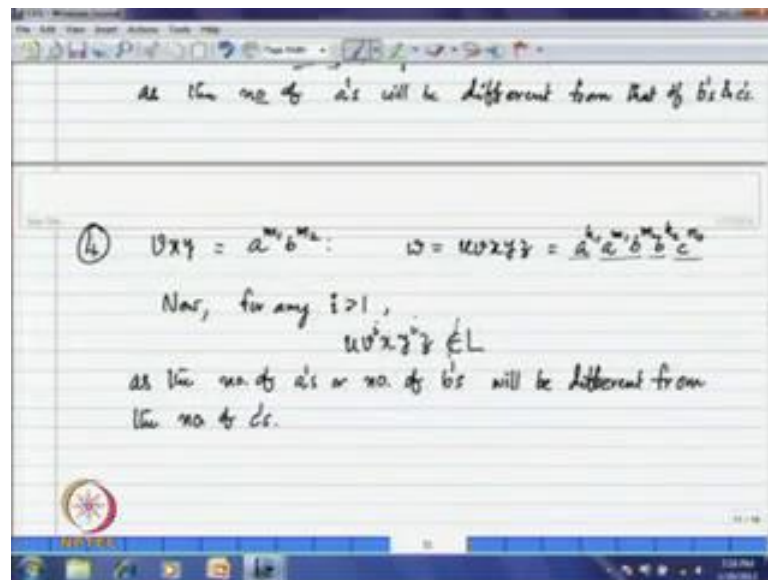 as the no of a's will be different from that of b's & c's
④ vxy = a^{m₁} b^{m₂} : w = uvxyz = a^{k₁} a^{m₁} b^{m₂} b^{k₂} c^{n₀}
Now, for any i > 1,
uv^i x y^i z ∉ L
as the no. of a's or no. of b's will be different from
the no of c's.
NPTEL